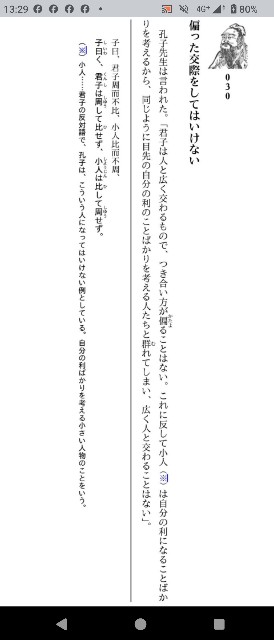 13:29 4G+ 80%
030
偏った交際をしてはいけない
孔子先生は言われた。「君子は人と広く交わるもので、つき合い方が偏ることはない。これに反して小人（※）は自分の利になることばか
りを考えるから、同じように目先の自分の利のことばかりを考える人たちと群れてしまい、広く人と交わることはない」。
子曰、君子周而不比、小人比而不周、
子曰く、君子は周して比せず、小人は比して周せず。
（※）小人……君子の反対語で、孔子は、こういう人になってはいけない例としている。自分の利ばかりを考える小さい人物のことをいう。